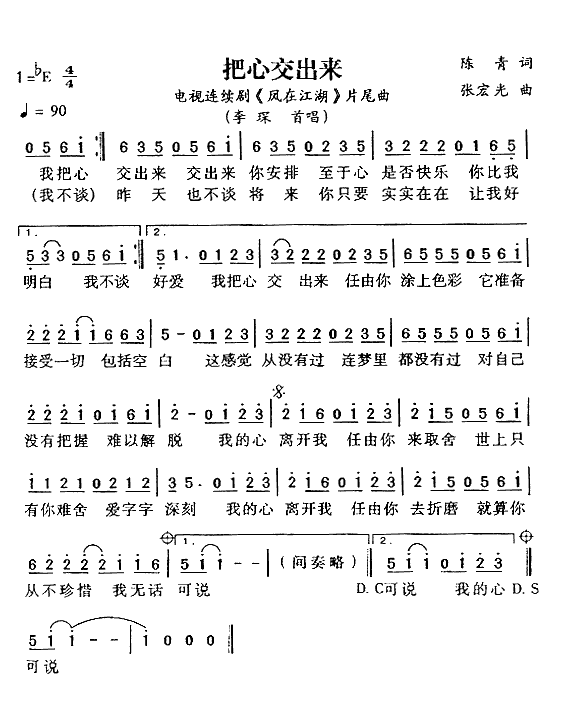 把心交出来
1=♭E 4/4
陈 青 词
电视连续剧《风在江湖》片尾曲
张宏光 曲
♩=90
(李 琛 首唱)
0 5 6 i :‖ 6 3 5 0 5 6 i | 6 3 5 0 6 3 5 | 3 2 2 2 0 2 1 6 5 |
我把心 交出来 交出来 你安排 至于心 是否快乐 你比我
(我不谈) 昨 天 也不谈 将 来 你只要 实实在在 让我好
1. 2.
5 3 3 0 5 6 i :‖ 5 1· 0 1 2 3 | 3 2 2 2 0 2 3 5 | 3 2 2 2 0 5 6 i |
明白 我不谈 好爱 我把心 交 出来 任由你 涂上色彩 它准备
2 2 2 i i 6 6 3 | 5 - 0 1 2 3 | 3 2 2 2 0 2 3 5 | 3 2 2 2 0 5 6 i |
接受一切 包括空 白 这感觉 从没有过 连梦里 都没有过 对自己
2 2 2 i 0 i 6 i | 2 - 0 i 2 3 | 2 i 6 0 i 2 3 | 2 i 5 0 5 6 i |
没有把握 难以解 脱 我的心 离开我 任由你 来取舍 世上只
i 1 2 1 0 2 1 2 | 3 5· 0 i 2 3 | 2 i 6 0 i 2 3 | 2 i 5 0 5 6 i |
有你难舍 爱字字 深刻 我的心 离开我 任由你 去折磨 就算你
1. 2.
6 2 2 2 2 i 6 | 5 i - - | (间奏略) :‖ 5 i i 0 i 2 3 ‖
从不珍惜 我无话 可说 D.C可说 我的心 D.S
5 i i - - | i 0 0 0 ‖
可说